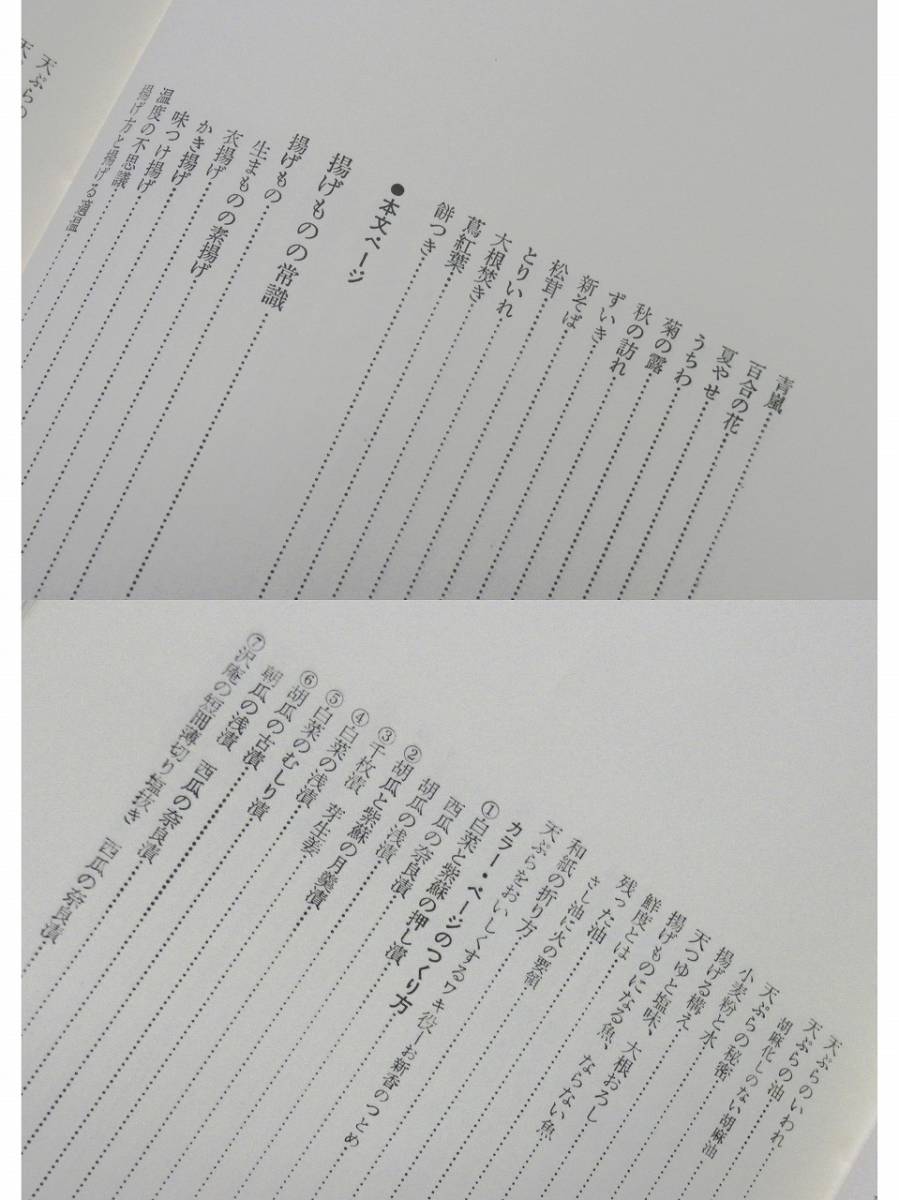 青嵐
百合の花
夏やせ
うちわ
菊の露
秋の訪れ
ずいき
新そば
松茸
とりいれ
大根焚き
蔦紅葉
餅つき
●本文ページ
揚げものの常識
揚げもの
生まものの素揚げ
衣揚げ
かき揚げ
味つけ揚げ
温度の不思議
揚げ方と揚げる適温
天ぷらの
天ぷらのいわれ
天ぷらの油
胡麻化しのない胡麻油
天ぷらの秘密
小麦粉と水
揚げる構え
天つゆと塩味、大根おろし
揚げものになる魚、ならない魚
鮮度とは
残った油
さし油に火の要領
和紙の折り方
天ぷらをおいしくするワキ役—お新香のつとめ
カラー・ページのつくり方
①白菜と紫蘇の押し漬
西瓜の奈良漬
②胡瓜の浅漬
胡瓜と紫蘇の月羹漬
③千枚漬 芽生姜
④白菜の浅漬
⑤白菜のむしり漬
⑥胡瓜の古漬
朝瓜の浅漬 西瓜の奈良漬
⑦沢庵の短冊薄切り塩抜き 西瓜の奈良漬